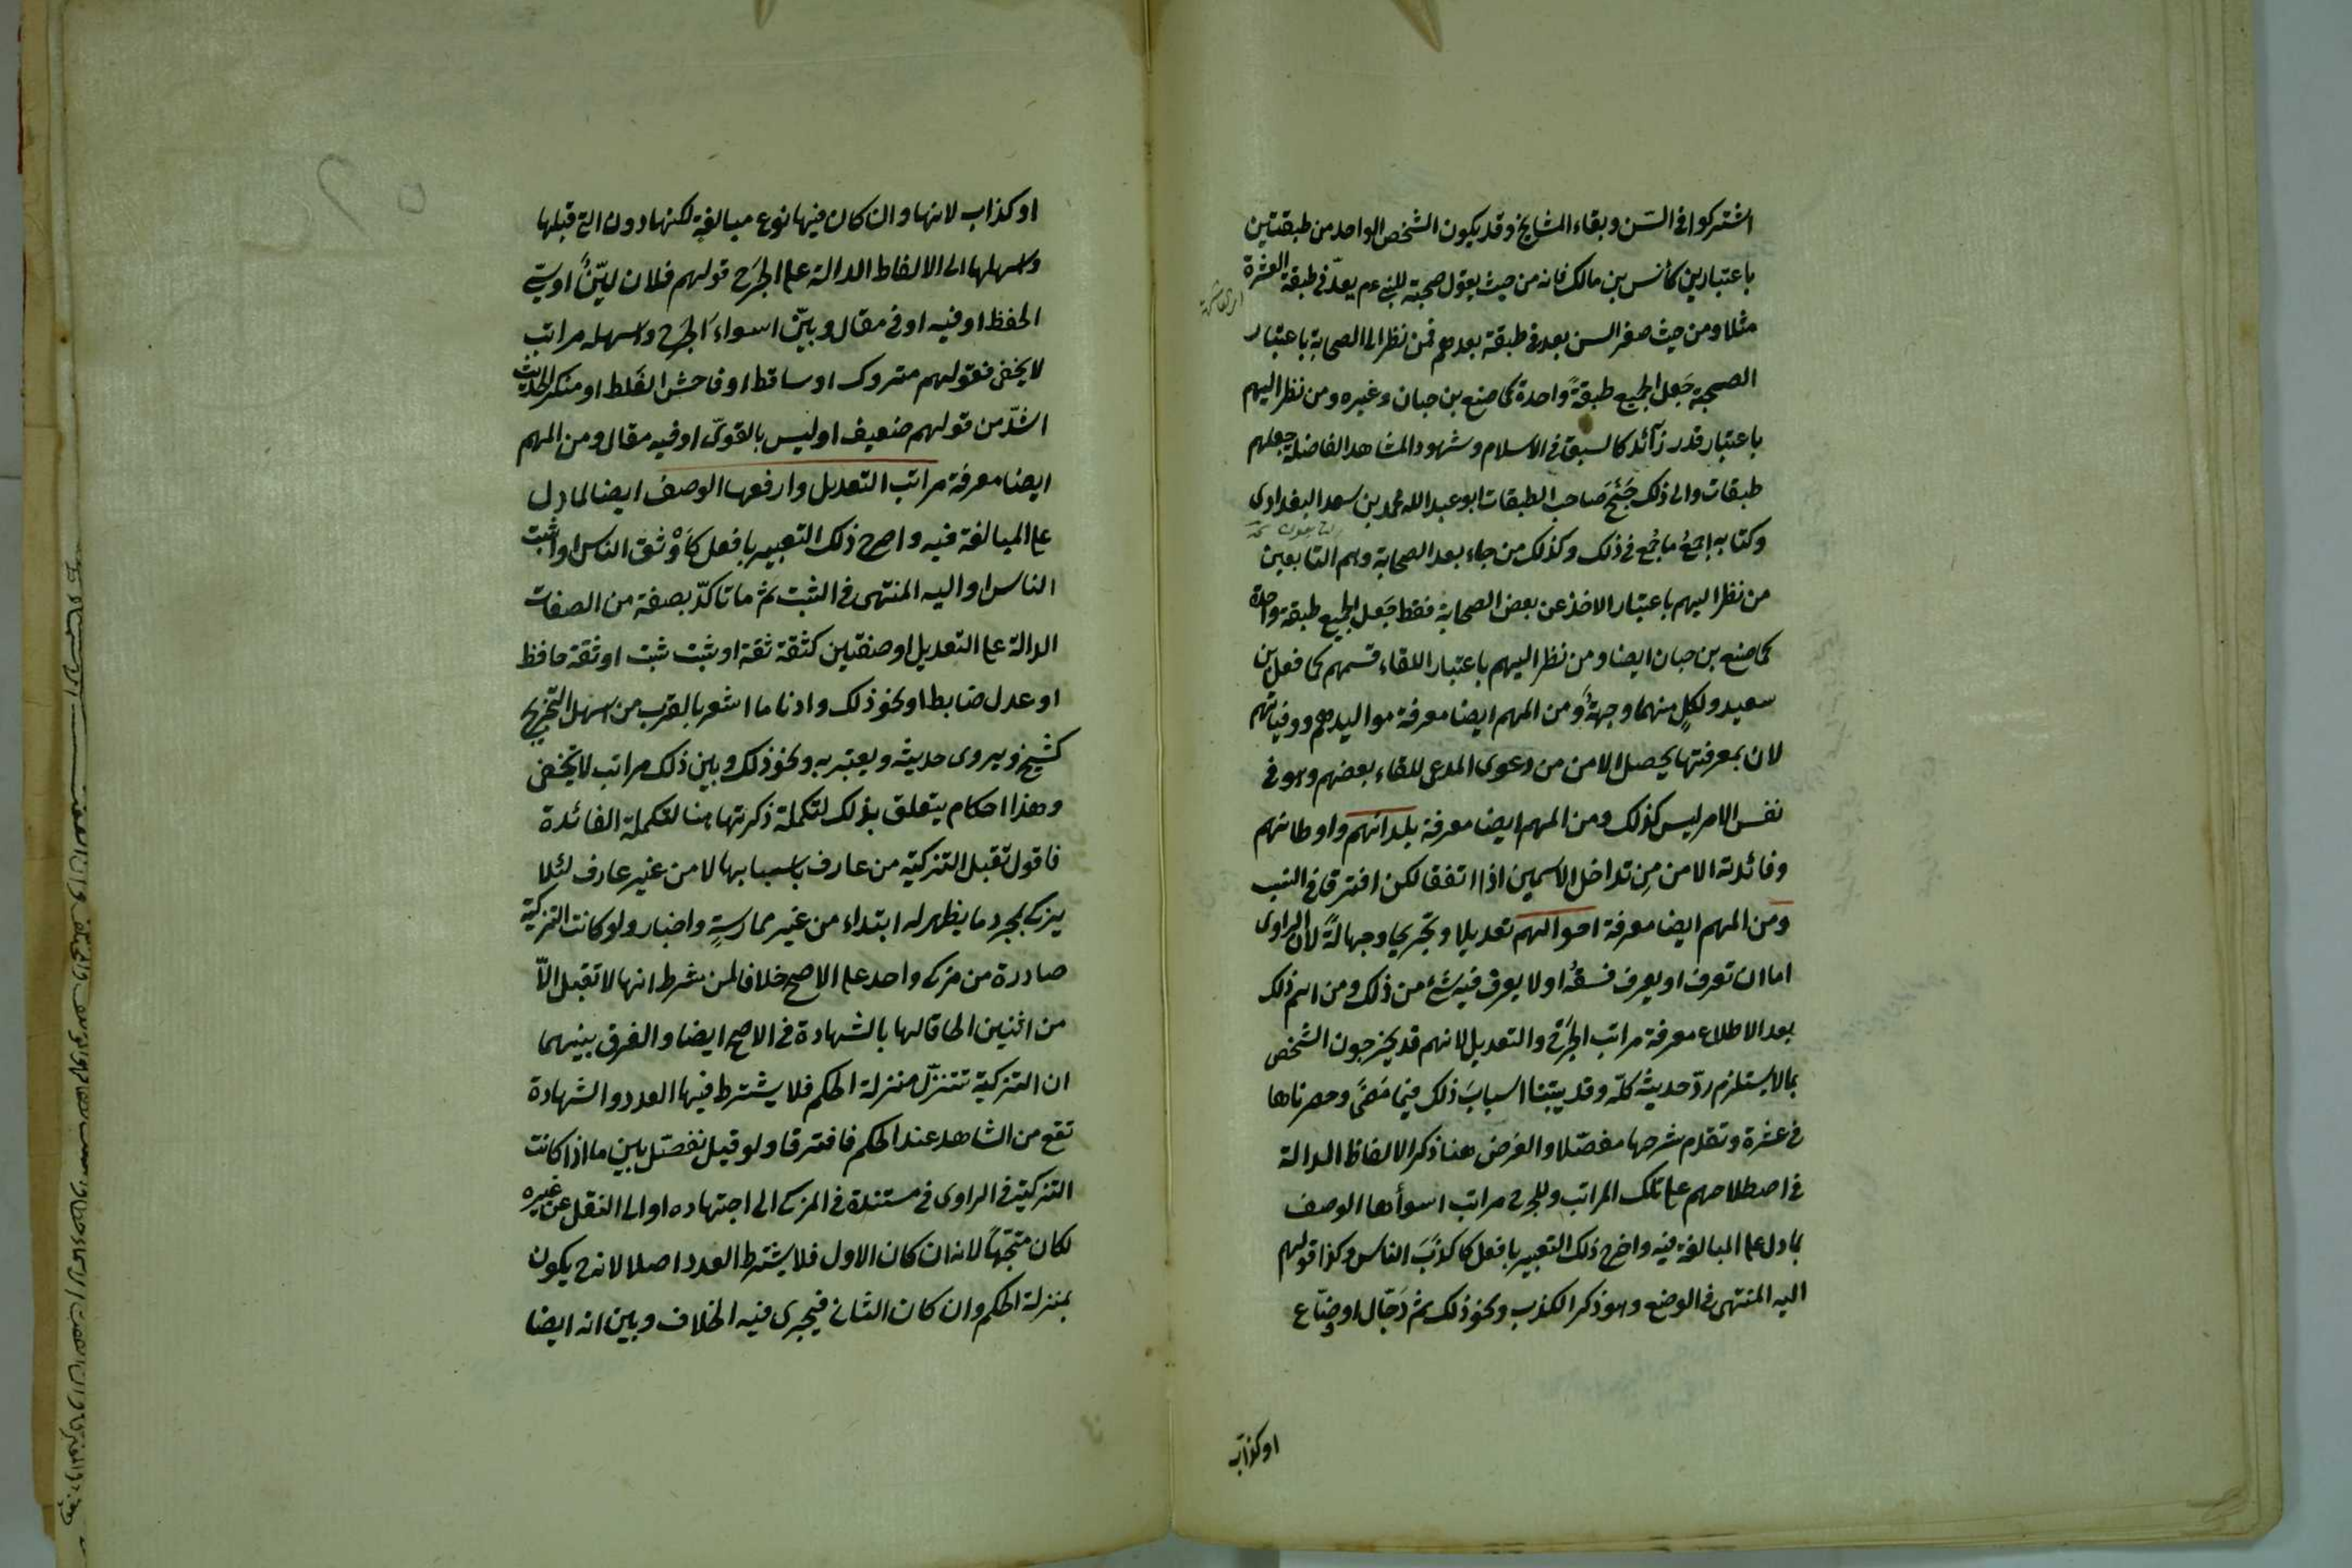 اشتركوا فى السّن وبقاء المشايخ وقد يكون الشخص الواحد من طبقتين
باعتبارين كأنس بن مالك فانه من حيث يعول صحبته للنبى عم يعدّ فى طبقة العشرة
مثلا ومن حيث صغر السن يعد فى طبقة بعدهم فمن نظر الى الصحابة باعتبار
الصحبة جَعل الجميع طبقةً واحدة كما صنع بن حبان وغيره ومن نظر اليهم
باعتبار قدر زآئد كالسبق فى الاسلام وشهود المشاهد الفاضلة جعلهم
طبقات والى ذلك جَنَحَ صاحب الطبقات ابو عبد الله محمد بن سعد البغدادى
وكتابه اجمعُ ما جُمع فى ذلك وكذلك من جاء بعد الصحابة وهم التابعين
من نظر اليهم باعتبار الاخذ عن بعض الصحابة فقط جَعل الجميع طبقة واحدة
كما صنع بن حبان ايضا ومن نظر اليهم باعتبار اللقاء قسمهم كما فعل بن
سعيد ولكلٍ منهما وجهةً ومن المهم ايضا معرفة مواليدهم ووفياتهم
لان بمعرفتها يحصل الامن من دعوى المدعى للقاء بعضهم وهو فى
نفس الامر ليس كذلك ومن المهم ايضا معرفة بلدانهم واوطانهم
وفائدته الامن مِن تداخل الاسمين اذا اتفقا لكن افترقا فى النسب
ومن المهم ايضا معرفة احوالهم تعديلا وتجريحا وجهالةً لان الراوى
اما ان تعرف او يعرف فسقُه او لا يعرف فيه شئ من ذلك ومن اهم ذلك
بعد الاطلاع معرفة مراتب الجَرح والتعديل لانهم قد يخرجون الشخص
بما لا يستلزم ردّ حديثه كلّه وقد بيّنا اسبابَ ذلك فيما مَضى وحصرناها
فى عشرة وتقدم شرحها مفصّلا والغرض هنا ذكر الالفاظ الدالة
فى اصطلاحهم على تلك المراتب وللجرح مراتب اسوأها الوصف
بما دل على المبالغة فيه واصرح ذلك التعبير بافعل كاكذَبَ الناس وكذا قولهم
اليه المنتهى فى الوضع وهو ذكر الكذب ونحو ذلك ثم دَجّال او وضّاع
او كذاب
او كذاب لانها وان كان فيها نوع مبالغة لكنها دون التى قبلها
واسهلها اى الالفاظ الدالة على الجَرح قولهم فلان ليّنٌ او سيئ
الحفظ او فيه او فى مقال وبيّن اسواء الجَرح واسهله مراتب
لا يخفى فقولهم متروك او ساقط او فاحش الغَلط او منكر الحديث
اشدّ من قولهم ضعيف او ليس بالقوىّ او فيه مقال ومن المهم
ايضا معرفة مراتب التعديل وارفعها الوصف ايضا لما دل
على المبالغة فيه واصرح ذلك التعبير بافعل كَأوْثق الناس او اثبت
الناس او اليه المنتهى فى الثبت ثم ما تاكدّ بصفة من الصفات
الدالة على التعديل او صفتين كثقة ثقة او ثبت ثبت او ثقة حافظ
او عدل ضابط او نحو ذلك وادنا ما اشعر بالقرب من اسهل التجريح
كشيخ ويروى حديثه ويعتبر به ونحو ذلك وبين ذلك مراتب لا تخفى
وهذا احكام يتعلق بذلك لتكملة ذكرتها هنا لتكملة الفائدة
فاقول تقبل التزكية من عارف باسبابها لا من غير عارف لئلا
يزكى بمجرد ما يظهر له ابتداء من غير ممارسةٍ واختبار ولو كانت التزكية
صادرة من مزكى واحد على الاصح خلافا لمن شرط انها لا تقبل الّا
من اثنين الحاقا لها بالشهادة فى الاصح ايضا والفرق بينهما
ان التزكية تتنزّل منزلة الحكم فلا يشترط فيها العدد والشهادة
تقع من الشاهد عند الحكم فافترقا ولو قيل نفصّل بين ما اذا كانت
التزكية فى الراوى فى مستندة فى المزكى الى اجتهاده او الى النقل عن غيره
لكان متجّهاً لانه ان كان الاول فلا يشترط العدد اصلا لانه ح يكون
بمنزلة الحكم وان كان الثانى فيجرى فيه الخلاف وبين انه ايضا